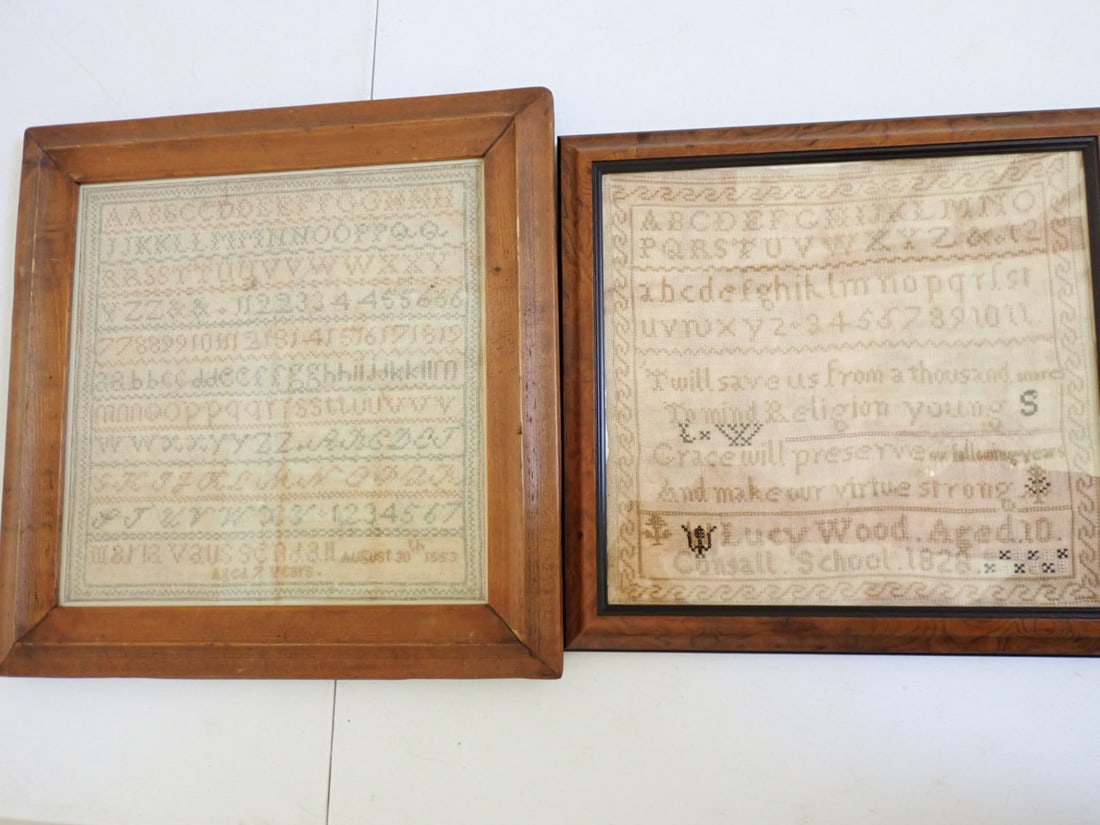 AABBCCDDEEFFGGHH
IJKKLLMMNNOOPPQQ
RRSSTTUUVVWWXXY
YZZ&&. 112233445566
77889910111213141516171819
aabbccddeeffgghhiijjkkllm
mnnooppqqrrſsttuuvvv
WWXXYYZZ
1234567
August 30th 1853
Aged 9 years.
ABCDEFGHIJKLMNO
PQRSTUVWXYZ&.12
abcdefghiklmnopqrſst
uvwxyz.34567891011.
Twill save us from a thousand snares
To mind Religion young S
L.W
Grace will preserve our following years
And make our virtue strong
W Lucy Wood. Aged.10.
Consall. School.1828.